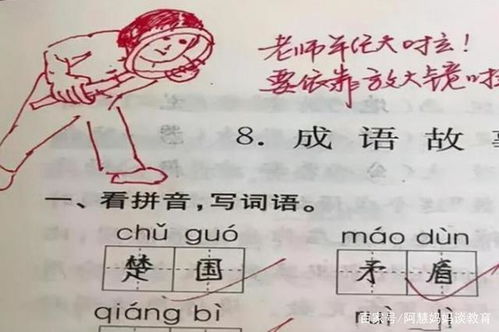 老师年纪大啦!
要依靠放大镜啦
8. 成语故
一、看拼音,写词语。
chǔ guó máo dùn
楚国 矛盾
qiáng bì
百家号/阿慧妈妈谈教育